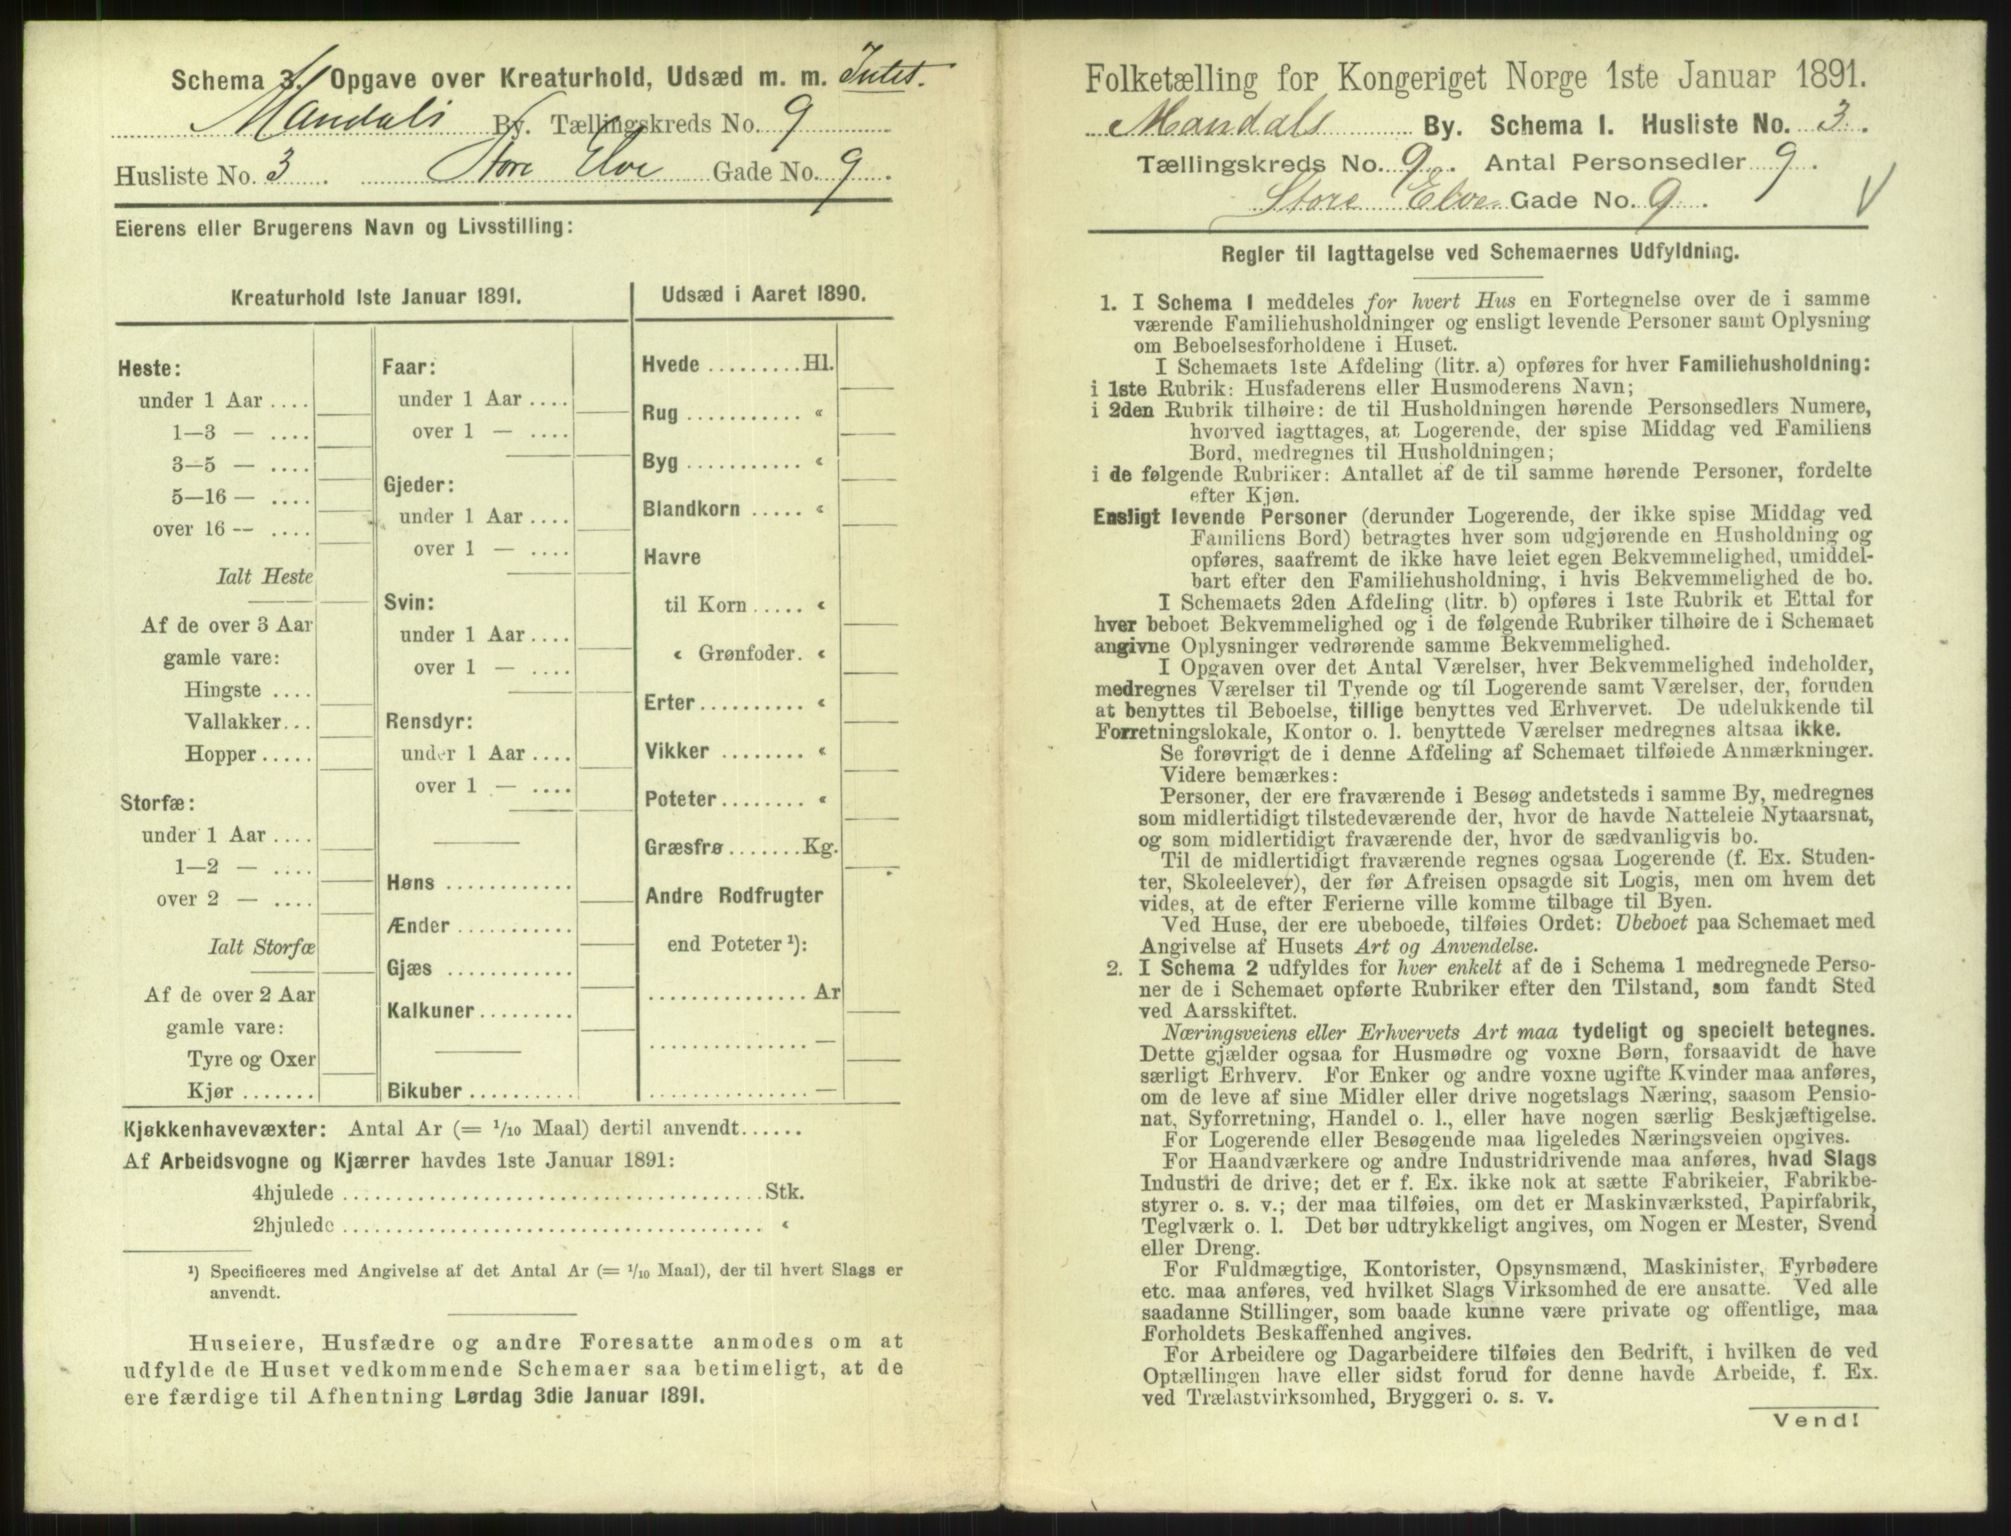 Schema 3. Opgave over Kreaturhold, Udsæd m. m. Intet.
Mandals By. Tællingskreds No. 9
Husliste No. 3. Store Elve Gade No. 9.
Eierens eller Brugerens Navn og Livsstilling:
Kreaturhold 1ste Januar 1891.
Heste:
under 1 Aar ....
1—3 — ....
3—5 — ....
5—16 — ....
over 16 -- ....
Ialt Heste
Af de over 3 Aar
gamle vare:
Hingste ....
Vallakker...
Hopper.....
Storfæ:
under 1 Aar ....
1—2 — ....
over 2 — ....
Ialt Storfæ
Af de over 2 Aar
gamle vare:
Tyre og Oxer
Kjør.......
Faar:
under 1 Aar ....
over 1 — ....
Gjeder:
under 1 Aar ....
over 1 — ....
Svin:
under 1 Aar....
over 1 — ....
Rensdyr:
under 1 Aar ....
over 1 — ....
Høns ............
Ænder ...........
Gjæs ............
Kalkuner.........
Bikuber..........
Udsæd i Aaret 1890.
Hvede .........Hl.
Rug ........... «
Byg ........... «
Blandkorn ..... «
Havre
til Korn ..... «
« Grønfoder. «
Erter.......... «
Vikker ........ «
Poteter........ «
Græsfrø.......Kg.
Andre Rodfrugter
end Poteter ¹):
............... Ar
............... —
............... —
Kjøkkenhavevæxter: Antal Ar (= 1/10 Maal) dertil anvendt......
Af Arbeidsvogne og Kjærrer havdes 1ste Januar 1891:
4hjulede ........................................Stk.
2hjulede ........................................ «
¹) Specificeres med Angivelse af det Antal Ar (= 1/10 Maal), der til hvert Slags er
anvendt.
Huseiere, Husfædre og andre Foresatte anmodes om at
udfylde de Huset vedkommende Schemaer saa betimeligt, at de
ere færdige til Afhentning Lørdag 3die Januar 1891.
Folketælling for Kongeriget Norge 1ste Januar 1891.
Mandals By. Schema I. Husliste No. 3.
Tællingskreds No. 9. Antal Personsedler 9.
Store Elve Gade No. 9.
Regler til Iagttagelse ved Schemaernes Udfyldning.
1. I Schema I meddeles for hvert Hus en Fortegnelse over de i samme
værende Familiehusholdninger og ensligt levende Personer samt Oplysning
om Beboelsesforholdene i Huset.
I Schemaets 1ste Afdeling (litr. a) opføres for hver Familiehusholdning:
i 1ste Rubrik: Husfaderens eller Husmoderens Navn;
i 2den Rubrik tilhøire: de til Husholdningen hørende Personsedlers Numere,
hvorved iagttages, at Logerende, der spise Middag ved Familiens
Bord, medregnes til Husholdningen;
i de følgende Rubriker: Antallet af de til samme hørende Personer, fordelte
efter Kjøn.
Ensligt levende Personer (derunder Logerende, der ikke spise Middag ved
Familiens Bord) betragtes hver som udgjørende en Husholdning og
opføres, saafremt de ikke have leiet egen Bekvemmelighed, umiddel-
bart efter den Familiehusholdning, i hvis Bekvemmelighed de bo.
I Schemaets 2den Afdeling (litr. b) opføres i 1ste Rubrik et Ettal for
hver beboet Bekvemmelighed og i de følgende Rubriker tilhøire de i Schemaet
angivne Oplysninger vedrørende samme Bekvemmelighed.
I Opgaven over det Antal Værelser, hver Bekvemmelighed indeholder,
medregnes Værelser til Tyende og til Logerende samt Værelser, der, foruden
at benyttes til Beboelse, tillige benyttes ved Erhvervet. De udelukkende til
Forretningslokale, Kontor o. l. benyttede Værelser medregnes altsaa ikke.
Se forøvrigt de i denne Afdeling af Schemaet tilføiede Anmærkninger.
Videre bemærkes:
Personer, der ere fraværende i Besøg andetsteds i samme By, medregnes
som midlertidigt tilstedeværende der, hvor de havde Natteleie Nytaarsnat,
og som midlertidigt fraværende der, hvor de sædvanligvis bo.
Til de midlertidigt fraværende regnes ogsaa Logerende (f. Ex. Studen-
ter, Skoleelever), der før Afreisen opsagde sit Logis, men om hvem det
vides, at de efter Ferierne ville komme tilbage til Byen.
Ved Huse, der ere ubeboede, tilføies Ordet: Ubeboet paa Schemaet med
Angivelse af Husets Art og Anvendelse.
2. I Schema 2 udfyldes for hver enkelt af de i Schema 1 medregnede Perso-
ner de i Schemaet opførte Rubriker efter den Tilstand, som fandt Sted
ved Aarsskiftet.
Næringsveiens eller Erhvervets Art maa tydeligt og specielt betegnes.
Dette gjælder ogsaa for Husmødre og voxne Børn, forsaavidt de have
særligt Erhverv. For Enker og andre voxne ugifte Kvinder maa anføres,
om de leve af sine Midler eller drive nogetslags Næring, saasom Pensio-
nat, Syforretning, Handel o. l., eller have nogen særlig Beskjæftigelse.
For Logerende eller Besøgende maa ligeledes Næringsveien opgives.
For Haandværkere og andre Industridrivende maa anføres, hvad Slags
Industri de drive; det er f. Ex. ikke nok at sætte Fabrikeier, Fabrikbe-
styrer o. s. v.; der maa tilføies, om det er Maskinværksted, Papirfabrik,
Teglværk o. l. Det bør udtrykkeligt angives, om Nogen er Mester, Svend
eller Dreng.
For Fuldmægtige, Kontorister, Opsynsmænd, Maskinister, Fyrbødere
etc. maa anføres, ved hvilket Slags Virksomhed de ere ansatte. Ved alle
saadanne Stillinger, som baade kunne være private og offentlige, maa
Forholdets Beskaffenhed angives.
For Arbeidere og Dagarbeidere tilføies den Bedrift, i hvilken de ved
Optællingen have eller sidst forud for denne havde Arbeide, f. Ex.
ved Trælastvirksomhed, Bryggeri o. s. v.
Vend!